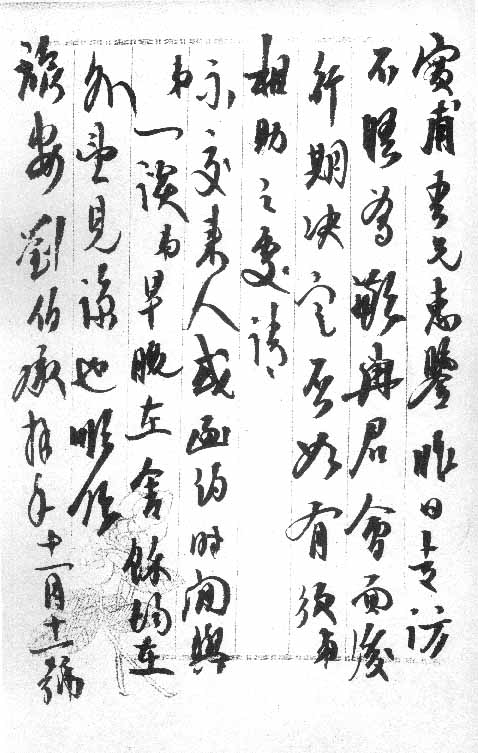 實甫吾兄惠鑒昨日走訪
不晤為歉與君會面後
行期決定否如有須弟
相助之處請
示交來人或函約時間與
弟一談弟早晚在舍餘均在
外盍見諒也順頌
旅安劉伯承拜手十一月十一號